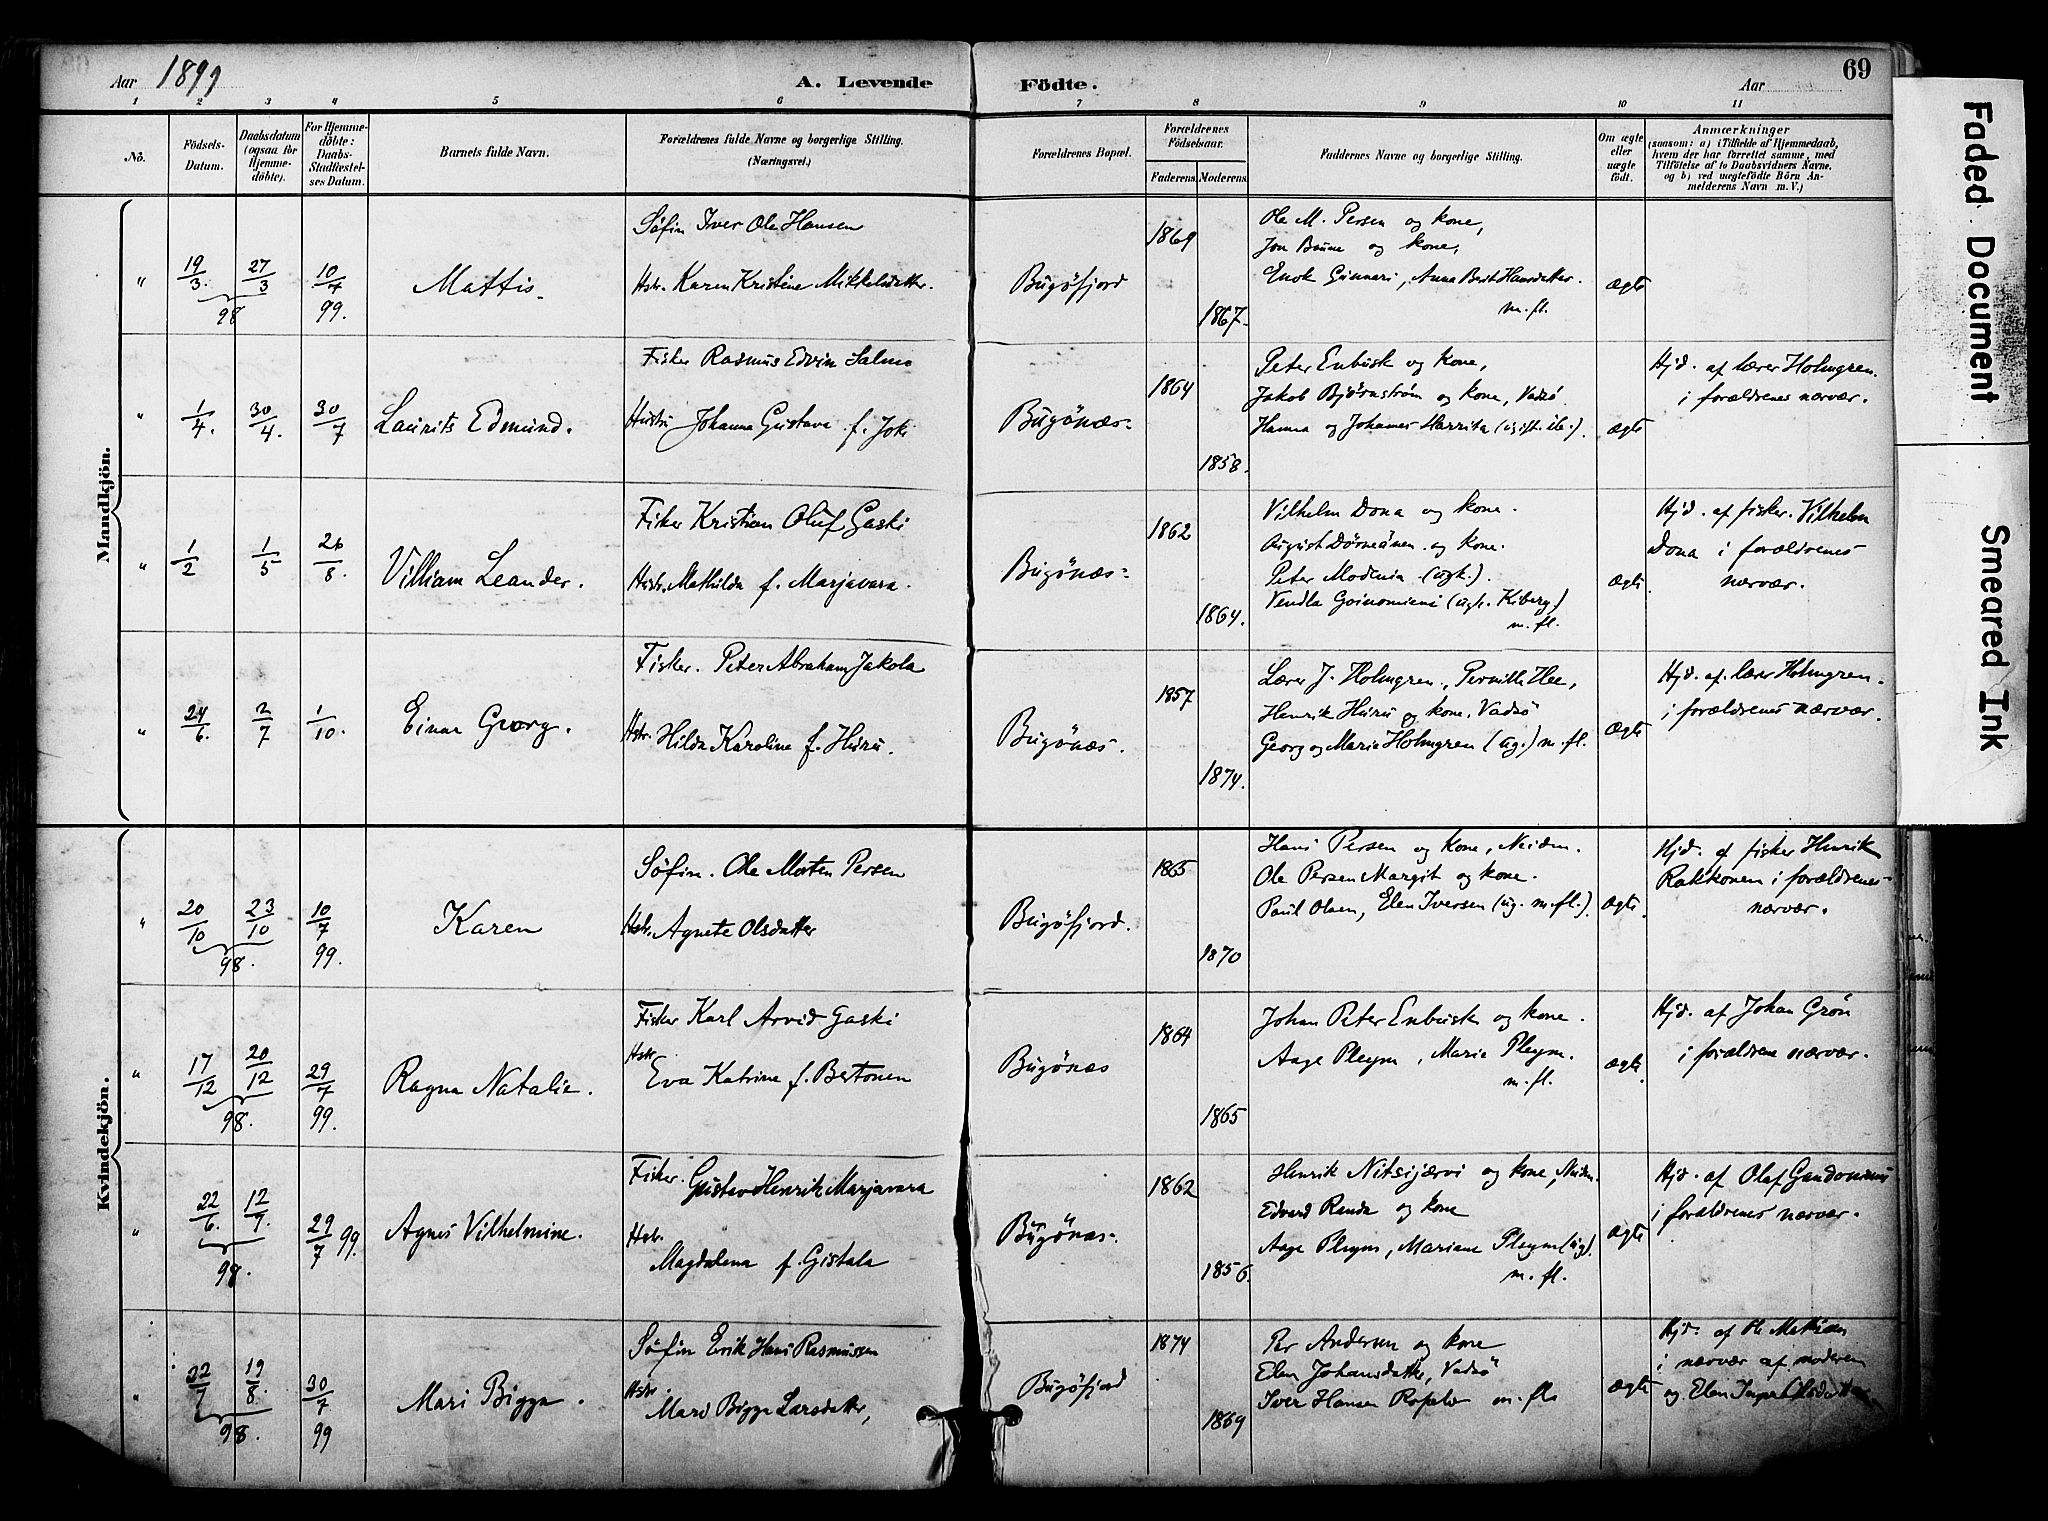 Aar 1899
A. Levende Födte.
Aar
69
1 2 3 4 5 6 7 8 9 10 11
No.
Födsels-Datum.
Daabsdatum (ogsaa for Hjemme-döbte).
For Hjemme-döbte: Daabs-Stadfæstel-ses Datum.
Barnets fulde Navn.
Forældrenes fulde Navne og borgerlige Stilling.
(Næringsvei.)
Forældrenes Bopæl.
Forældrenes Födselsaar.
Faderens. Moderens.
Faddernes Navne og borgerlige Stilling.
Om ægte eller uægte födt.
Anmærkninger
(saasom: a) i Tilfælde af Hjemmedaab,
hvem der har forrettet samme, med
Tilföielse af to Daabsvidners Navne,
og b) ved uægtefödte Börn An-
melderens Navn m. V.)
Mandkjön.
" 19/3 27/3 98 10/7 99.
Mattis.
Søfin Iver Ole Hansen
Hstr. Karen Kristine Mikkelsdatter.
Bugøfjord
1869
1867.
Ole M. Persen og kone,
Jon Baune og kone,
Enok Gunnari, Anna Brit Hansdatter
m. fl.
ægte
" 1/4. 30/4. 30/7
Laurits Edmund.
Fisker Rasmus Edvin Salmo
Hustru Johanna Gustava f. Joki
Bugønæs
1864
1858.
Peter Enbusk og kone,
Jakob Bjørnstrøm og kone, Vadsø.
Hanna og Johannes Harrita
ægte
Hjd. af lærer Holmgren.
i forældrenes nærvær.
" 1/2 1/5 26/8.
Villiam Leander.
Fisker Kristian Oluf Gaski
Hustr. Mathilda f. Marjavara.
Bugønæs
1862
1864.
Vilhelm Dona og kone.
August Dørmeänen og kone.
Peter Modenia (ugk.).
Vendla Goinomieni (ugk. Kiberg)
m. fl.
ægte.
Hjd. af fisker Vilhelm
Dona i forældrenes
nærvær.
" 24/6. 2/7 1/10.
Einar Georg.
Fisker. Peter Abraham Jakola
Hstr. Hilda Karoline f. Huru.
Bugønæs.
1857
1874.
Lærer J. Holmgren, Pernille Hee,
Henrik Huru og kone, Vadsø
Georg og Marie Holmgren (ug.) m. fl.
ægte
Hjd. af lærer Holmgren.
i forældrenes nærvær.
Kvindekjön.
" 20/10 23/10 98. 10/7 99.
Karen
Søfin. Ole Morten Persen
Hstr. Agnete Olsdatter
Bugøfjord.
1865
1870
Hans Persen og kone, Neiden.
Ole Persen Margit og kone.
Paul Olsen, Elen Iversen (ug. m. fl.).
ægte.
Hjd. af fisker Henrik
Rakkonen i forældrenes
nærvær.
" 17/12 20/12 98. 29/7 99.
Ragna Natalie.
Fisker Karl Arvid Gaski
Hstr. Eva Katrina f. Bertonen
Bugønæs
1864
1865
Johan Peter Enbusk og kone.
Aage Pleym, Marie Pleym.
m. fl.
ægte
Hjd. af Johan Grøn
i forældrene nærvær.
" 22/6. 12/9. 98. 29/7 99.
Agnes Vilhelmine.
Fisker. Gustav Henrik Marjavara
Hstr.
Magdalena f. Gistala
Bugønæs.
1862
1856.
Henrik Nitsijærvi og kone, Neiden.
Edvard Randa og kone
Aage Pleym, Mariane Pleym (ug).
m. fl.
ægte
Hjd. af Olaf
i forældrenes nærvær.
" 22/7 19/8. 98. 30/7 99
Mari Bigga.
Søfin Erik Hans Rasmussen
Hstr. Mari Bigga Larsdatter,
Bugøfjord
1874
1869
Per Andersen og kone
Elen Johansdatter, Vadsø
Iver Hansen m. fl.
ægte
Hjd. af Ole Mathisen
i nærvær af moderen
og Elen Inger Olsdatter
Faded Document
Smeared Ink